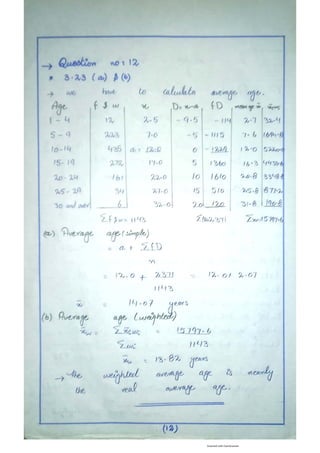 → Question no: 12
* 3.23 (a) & (b)
→ we have to calculate average age.
Age f & w x D=x-a fD mean age x̄ x̄ws
1 - 4 12 2.5 - 9.5 - 114 2.7 32.4
5 - 9 223 7.0 - 5 - 1115 7.6
10-14 435 a = 12.0 0 12.0
15-19 272 17.0 5 1360 16.3
20-24 161 22.0 10 1610 20.8
25-29 34 27.0 15 510 25.8 877.2
30 and over 6 32.0 20 120 31.8 190.8
Σf & w = 1143 Σfd=2371 Σxw=15797.6
(a) Average age (simple)
= a + ΣfD
n
= 12.0 + 2371 = 12.0+ 2.07
1143
x̄ = 14.07 years
(b) Average age (weighted)
x̄w = Σx̄sws = 15797.6
Σws 1143
x̄w = 13.82 years
→ the weighted average age is nearly
the real average age.
(12)